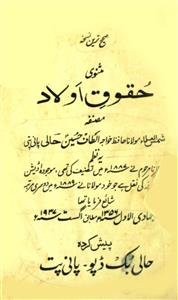 صحیح ترین نسخہ
مثنوی
حقوقِ اولاد
مصنفہ
شمس العلماء مولانا حافظ خواجہ الطاف حسین حالی پانی پتی
یہ نظم
مرحوم نے ۱۸۸۶ء میں تصنیف کی تھی، موجودہ ایڈیشن
کی نقل ہے جو خود مولانا نے ۱۸۸۹ء میں
شائع فرمایا تھا
جمادی الاول ۱۳۵۶ھ مطابق اگست ۱۹۳۷ء
پیش کردہ
حالی بک ڈپو - پانی پت